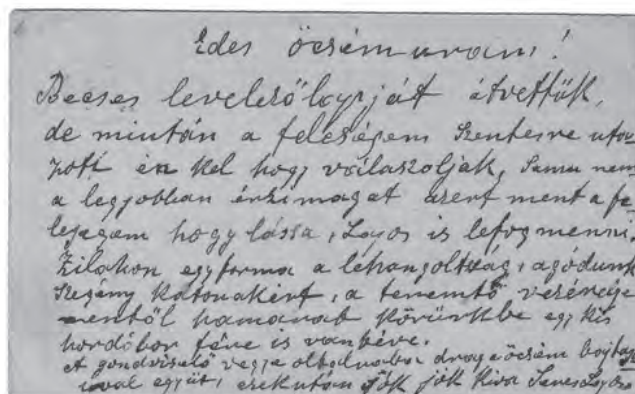 Edes öcsém uram!
Becses levelezőlapját átvettük,
de miután a feleségem Szentesre uta
zott én kel hogy válaszoljak, Samu nem
a legjobban érzi magat azert ment a fe
leségem hogy lássa, Lajos is lefog menni.
Zilahon egyforma a lehangoltság, agódunk
szegény katonakért, a teremtő vezérelje
mentől hamarab körünkbe egy kis
hordóbor féve is van téve.
A gondviselő vegye oltalmaba draga öcsém
uval együt, ezekután jók jók kiva